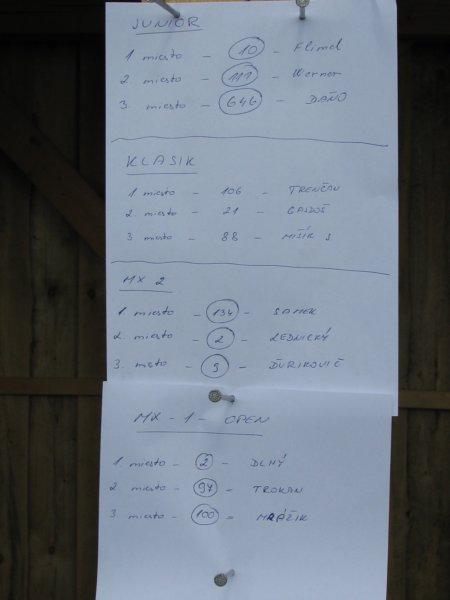 JUNIOR
1 miesto - 10 - Flimel
2. miesto - 111 - Werner
3. miesto - 646 - DAŇO
KLASIK
1 miesto - 106 - TRENČAN
2. miesto - 21 - GAJDOŠ
3. miesto - 88 - MIŠÍK S
MX 2
1 miesto - 134 - SAMEK
2. miesto - 2 - LEDNICKÝ
3. miesto - 9 - ĎURIKOVIČ
MX - 1 - OPEN
1 miesto - 2 - DLHÝ
2 miesto - 97 - TROKAN
3 miesto - 100 - MRÁZIK